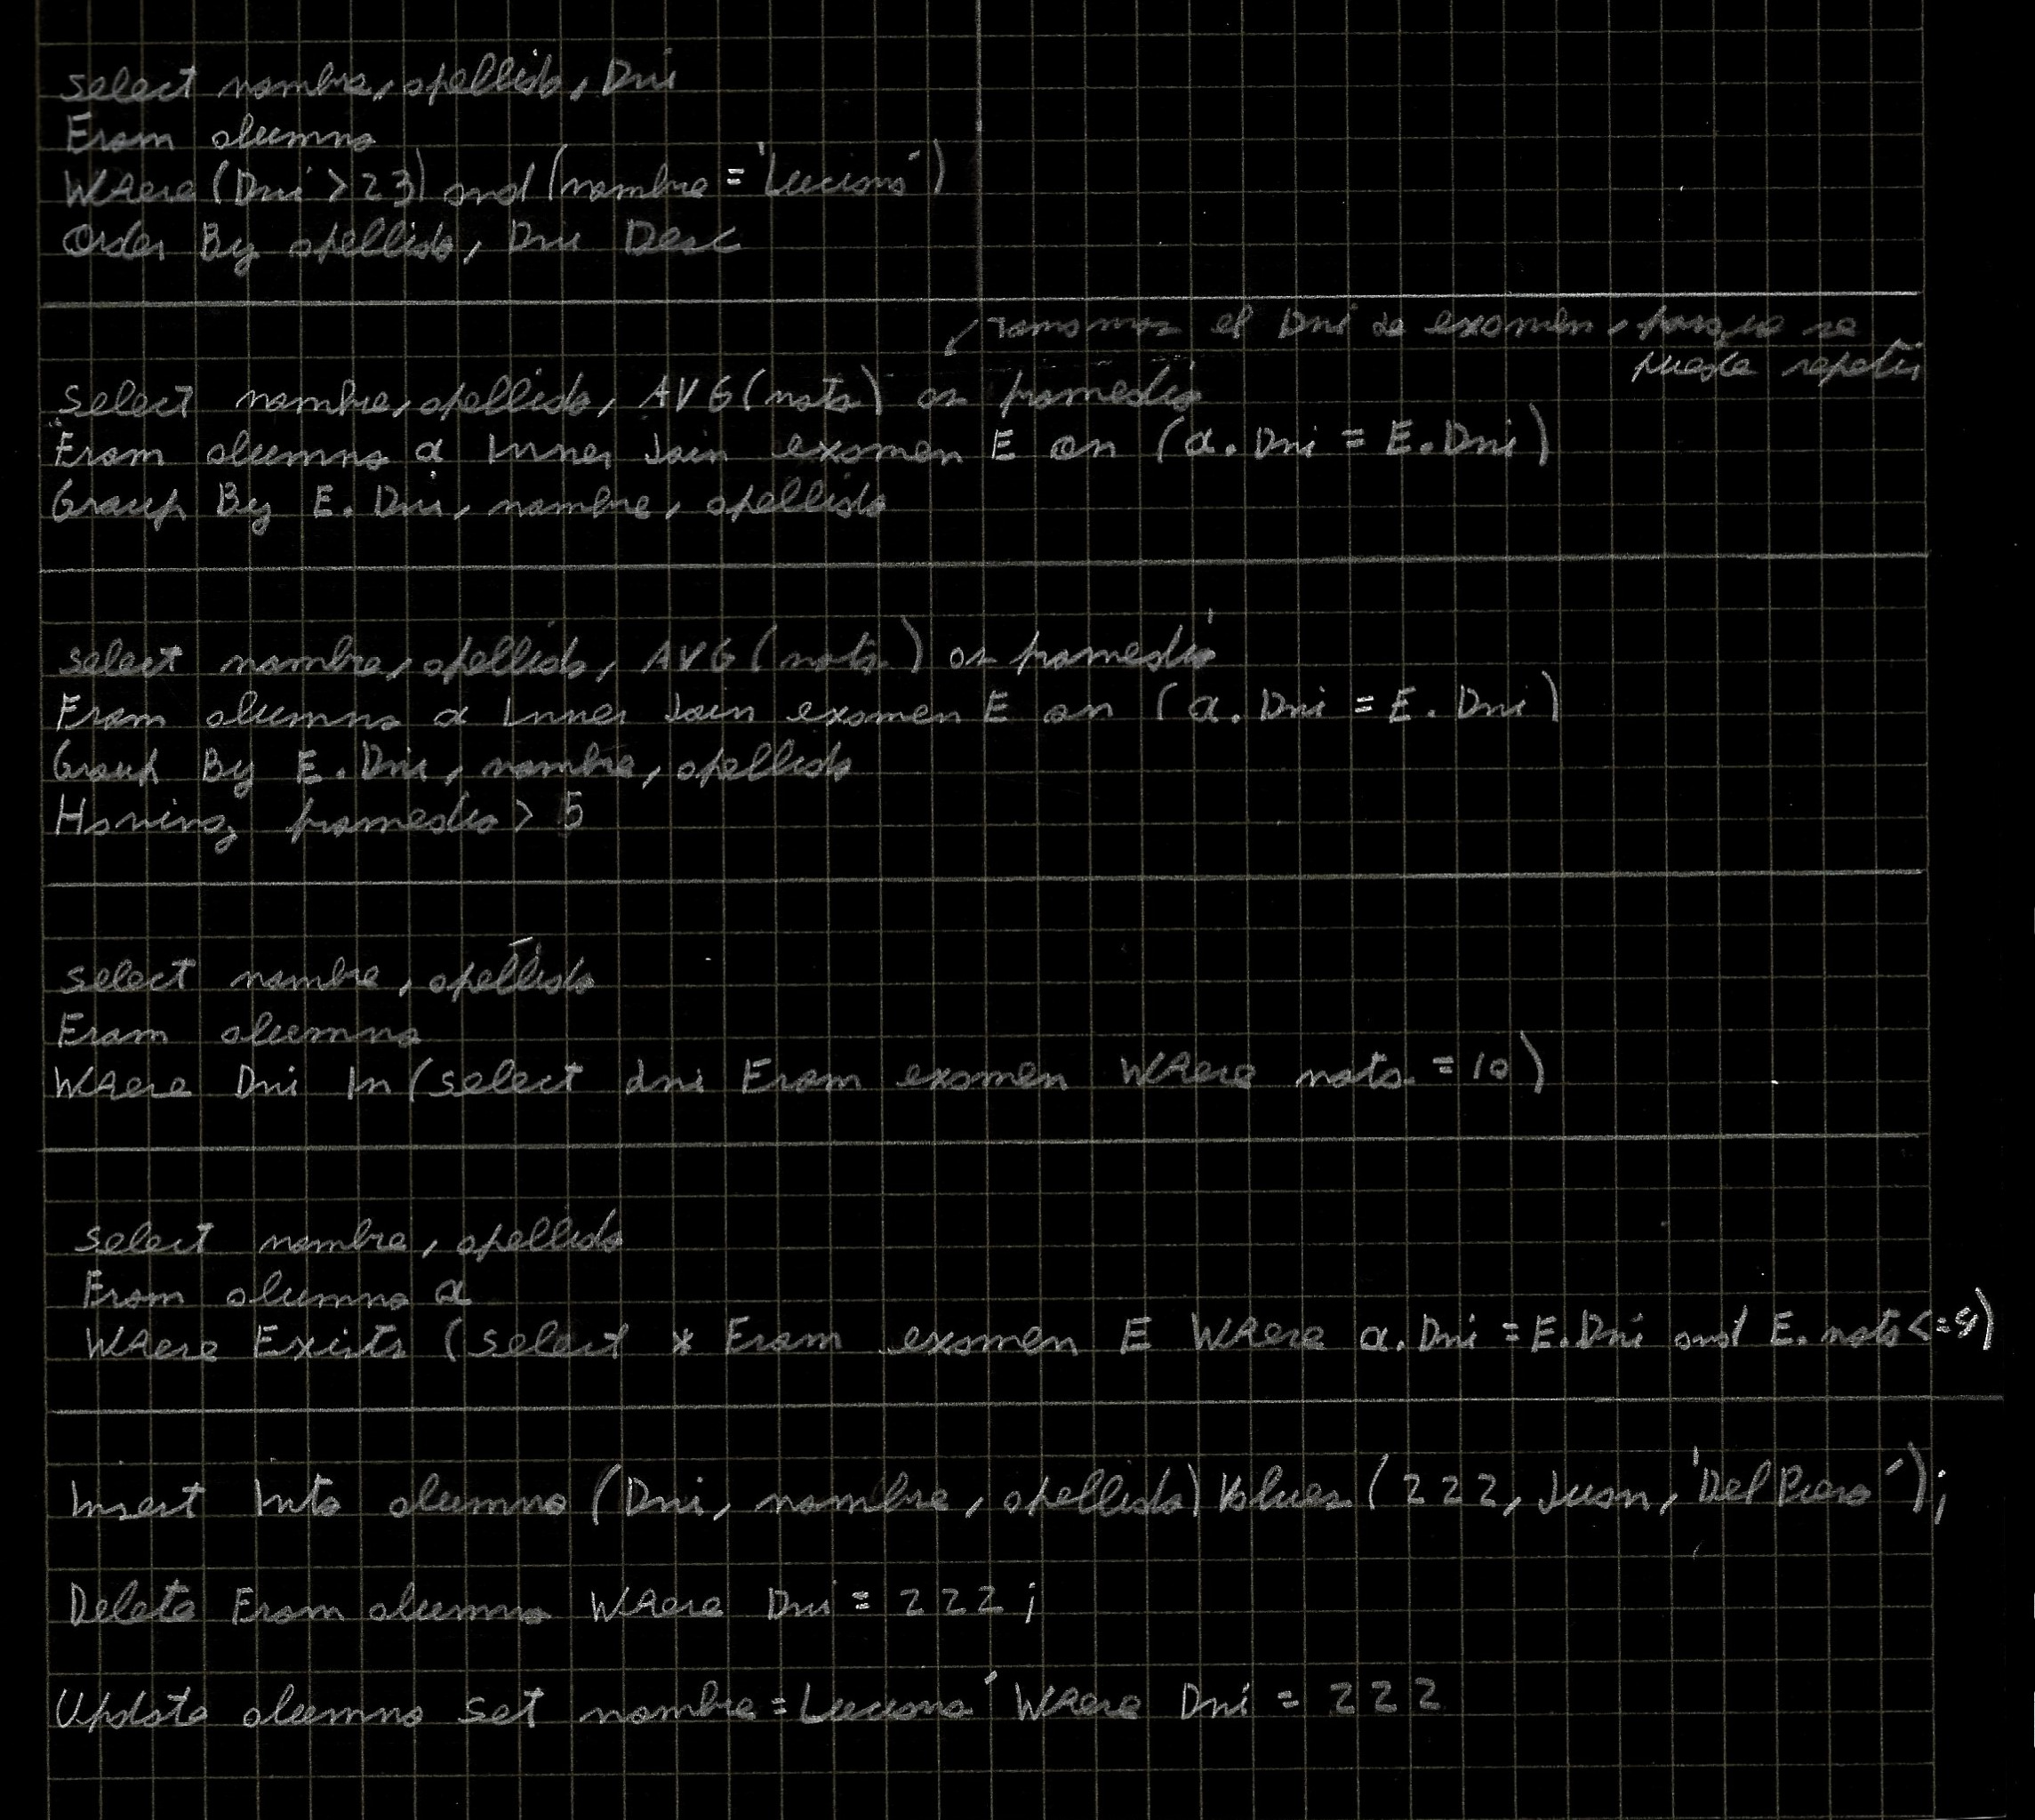 Select nombre, apellido, Dni
From alumno
Where (Dni > 23) and (nombre = 'Luciano')
Order By apellido, Dni Desc
Tomamos el Dni de examen, porque se
puede repetir
Select nombre, apellido, AVG (nota) as promedio
From alumno a Inner Join examen E on (a. Dni = E. Dni)
Group By E. Dni, nombre, apellido
Select nombre, apellido, AVG (nota) as promedio
From alumno a Inner Join examen E on (a. Dni = E. Dni)
Group By E. Dni, nombre, apellido
Having promedio > 5
Select nombre, apellido
From alumno
Where Dni In (select dni From examen Where nota = 10)
Select nombre, apellido
From alumno a
Where Exists (select * From examen E Where a. Dni = E. Dni and E. nota <=)
Insert Into alumno (Dni, nombre, apellido) Values (222, Juan, 'Del Piero');
Delete From alumno Where Dni = 222;
Update alumno set nombre = Luciano' Where Dni = 222